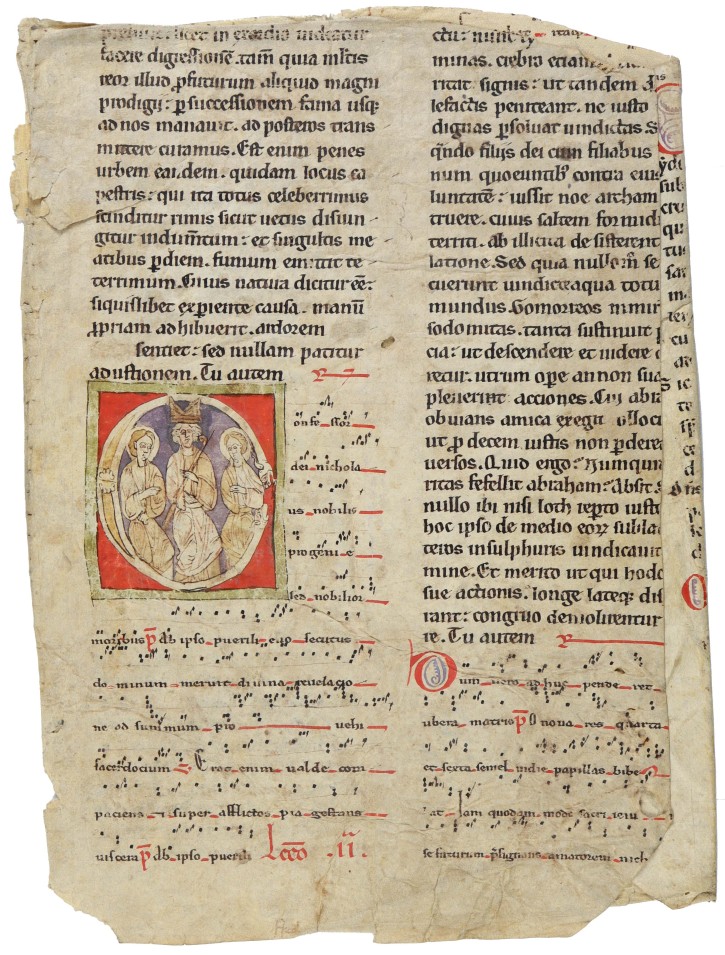 facere digressionẽ. tam̃ quia ml̃tis
reor illud ꝓfuturum aliquid magni
prodigii: ꝑ successionem fama usq;
ad nos manavit. ad posteros trans
mittere curamus. Est enim penes
urbem eandem. quidam locus ca
pestris: qui ita totus celeberrimus
scinditur rimis sicut uetus disiun
gitur indumẽtum: et singulis me
atibus ꝑ diem. fumum emittit te
terrimum. Cuius natura dicitur eẽ:
si quislibet exꝑiente causa. manũ
ꝓpriam adhibuerit. ardorem
sentiet: sed nullam patitur
adustionem. Tu autem R
onfessor
dei nichola
us nobilis
progenie
sed nobilior
moribus p̃ Ab ipso puerili euo secutus
dominum meruit diuina reuelacio
ne ad summum pro uehi
sacerdocium Erat enim ualde com
paciens et super afflictos pia gestans
uiscera p̃ Ab ipso puerili Lccõ .II.
minas. crebra etiam
ritat signis: ut tandem
lefactis peniteant. ne iusto
dignas ꝑsoluat uindictas. S
qñdo filiis dei cum filiabus
num quoeuntib; contra eius
luntatẽ: iussit noe archam
truere. cuius saltem formid
territi. Ab illicita desisterent
latione. Sed quia nullom̃ se
cuerunt uindice aqua totu
mundus. Gomorreos in mir
sodomitas. tanta sustinuit
cia: ut descendere et uidere
retur. utrum oꝑe an non sua
pleuerint acciones. Cui abra
obuians amica exegit
ut ꝓ decem iustis non ꝑderet
uersos. Quid ergo: Nunqui
ritas fefellit abraham? Absit. S
nullo ibi nisi loth reꝑto iusto
hoc ipso de medio eorz subla
teros in sulphuris uindicauit
mine. Et merito ut qui hodo
sue actionis. longe lateq; dis
rant: congruo demolirentur
re. Tu autem R
Dum uero adhuc penderet
ubera matris p̃ O noua res quarta
et sexta semel in die papillas bibe
at Iam quodam modo sacri ieiu
se futurum p̃signans amatorem nich